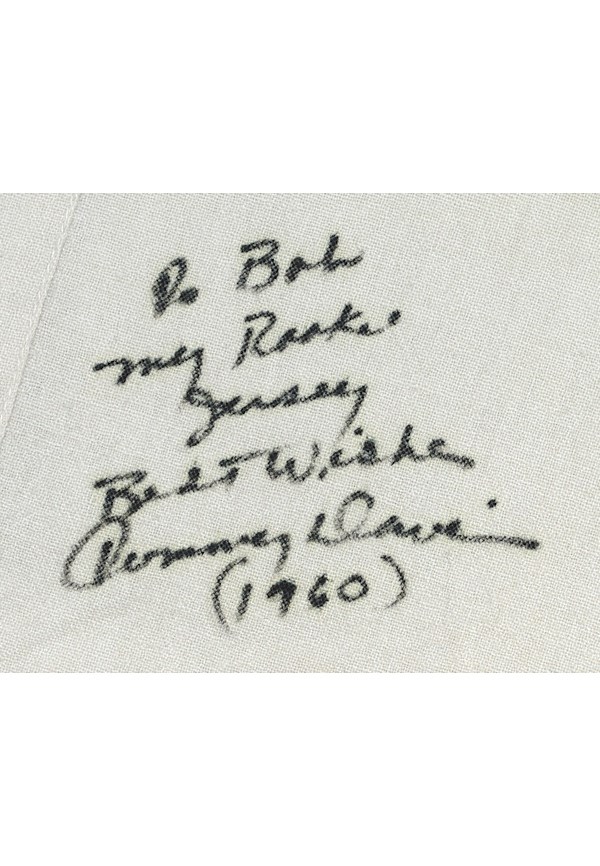 To Bob
my Rookie
Jersey
Best Wishes
Tommy Davis
(1960)